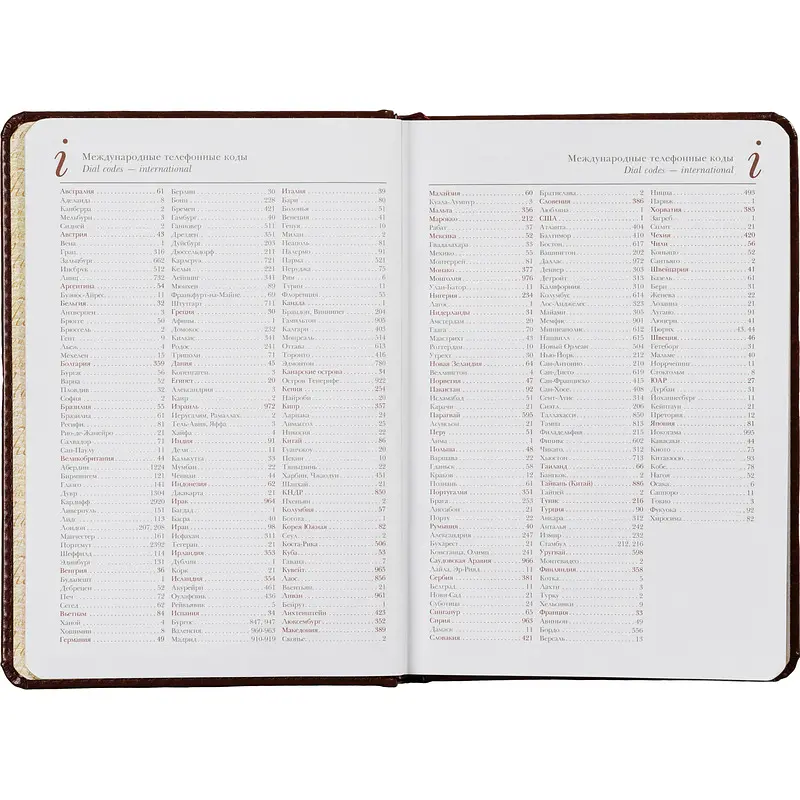 Международные телефонные коды
Dial codes — international
Австралия 61
Аделаида 8
Канберра 2
Мельбурн 3
Сидней 2
Австрия 43
Вена 1
Грац 316
Зальцбург 662
Инсбрук 512
Линц 732
Аргентина 54
Буэнос-Айрес 11
Бельгия 32
Антверпен 3
Брюгге 50
Брюссель 2
Гент 9
Льеж 4
Мехелен 15
Болгария 359
Бургас 56
Варна 52
Пловдив 32
София 2
Бразилия 55
Бразилиа 61
Ресифи 81
Рио-де-Жанейро 21
Салвадор 71
Сан-Паулу 11
Великобритания 44
Абердин 1224
Бирмингем 121
Глазго 141
Дувр 1304
Кардифф 2920
Ливерпуль 151
Лидс 113
Лондон 207, 208
Манчестер 161
Портсмут 2392
Шеффилд 114
Эдинбург 131
Венгрия 36
Будапешт 1
Дебрецен 52
Печ 72
Сегед 62
Вьетнам 84
Ханой 4
Хошимин 8
Германия 49
Берлин 30
Бонн 228
Бремен 421
Гамбург 40
Ганновер 511
Дрезден 351
Дуйсбург 203
Дюссельдорф 211
Карлсруэ 721
Кельн 221
Лейпциг 341
Мюнхен 89
Франкфурт-на-Майне 69
Штутгарт 711
Греция 30
Афины 1
Домокос 232
Килкис 341
Родос 241
Триполи 71
Дания 45
Копенгаген 3
Египет 20
Александрия 3
Каир 2
Израиль 972
Иерусалим, Рамаллах 2
Тель-Авив, Яффа 3
Хайфа 4
Индия 91
Дели 11
Калькутта 33
Мумбаи 22
Ченнаи 44
Индонезия 62
Джакарта 21
Ирак 964
Багдад 1
Басра 40
Иран 98
Исфахан 311
Тегеран 21
Ирландия 353
Дублин 1
Корк 21
Исландия 354
Акурейри 461
Оулафсвик 436
Рейкьявик 5
Испания 34
Бургос 847, 947
Валенсия 960-963
Мадрид 910-919
Италия 39
Бари 80
Болонья 51
Венеция 41
Генуя 10
Милан 2
Неаполь 81
Палермо 91
Парма 521
Перуджа 75
Рим 6
Турин 11
Флоренция 55
Канада 1
Брандон, Виннипег 204
Гамильтон 905
Калгари 403
Монреаль 514
Оттава 613
Торонто 416
Эдмонтон 780
Канарские острова 34
Остров Тенерифе 922
Кения 254
Найроби 20
Кипр 357
Ларнака 24
Лимассол 25
Никосия 22
Китай 86
Гуанчжоу 20
Пекин 10
Тяньцзинь 22
Харбин, Чжаоцин 451
Шанхай 21
КНДР 850
Пхеньян 2
Колумбия 57
Богота 1
Корея Южная 82
Сеул 2
Коста-Рика 506
Куба 53
Гавана 7
Кувейт 965
Лаос 856
Вьентьян 21
Ливан 961
Бейрут 1
Лихтенштейн 423
Люксембург 352
Македония 389
Скопье 2
Международные телефонные коды
Dial codes — international
Малайзия 60
Куала-Лумпур 3
Мальта 356
Марокко 212
Рабат 37
Мексика 52
Гвадалахара 33
Мехико 55
Монтеррей 81
Монако 377
Монголия 976
Улан-Батор 11
Нигерия 234
Лагос 1
Нидерланды 31
Амстердам 20
Гаага 70
Маастрихт 43
Роттердам 10
Утрехт 30
Новая Зеландия 64
Веллингтон 4
Норвегия 47
Пакистан 92
Исламабад 51
Карачи 21
Парагвай 595
Асунсьон 21
Перу 51
Лима 1
Польша 48
Варшава 22
Гданьск 58
Краков 12
Познань 61
Португалия 351
Брага 253
Лиссабон 21
Порту 22
Румыния 40
Александрия 247
Бухарест 21
Констанца, Олимп 241
Саудовская Аравия 966
Лайла, Эр-Рияд 11
Сербия 381
Белград 11
Нови-Сад 21
Суботица 24
Сингапур 65
Сирия 963
Дамаск 11
Словакия 421
Братислава 2
Словения 386
Любляна 1
США 1
Атланта 404
Балтимор 410
Бостон 617
Вашингтон 202
Даллас 972
Денвер 303
Детройт 313
Калифорния 310
Колумбус 614
Лос-Анджелес 323
Майами 305
Мемфис 901
Миннеаполис 612
Нашвилл 615
Новый Орлеан 504
Нью-Йорк 212
Сан-Антонио 210
Сан-Диего 619
Сан-Франциско 415
Сан-Хосе 408
Сент-Луис 314
Сиэтл 206
Таллахасси 850
Тампа 813
Филадельфия 215
Финикс 602
Чикаго 312
Хьюстон 713
Таиланд 66
Бангкок 2
Тайвань (Китай) 886
Тайпей 2
Тунис 216
Турция 90
Анкара 312
Анталья 242
Измир 232
Стамбул 212, 216
Уругвай 598
Монтевидео 2
Финляндия 358
Котка 5
Лахти 3
Турку 2
Хельсинки 9
Франция 33
Авиньон 49
Бордо 556
Версаль 13
Ницца 493
Париж 1
Хорватия 385
Загреб 1
Сплит 21
Чехия 420
Чили 56
Кокимбо 52
Сантьяго 2
Швейцария 41
Базель 61
Берн 31
Женева 22
Лозанна 21
Лугано 91
Люцерн 41
Цюрих 43, 44
Швеция 46
Гетеборг 31
Мальме 40
Норрчепинг 11
Стокгольм 8
ЮАР 27
Дурбан 31
Йоханнесбург 11
Кейптаун 21
Претория 12
Япония 81
Кавасаки 44
Киото 75
Китакюсю 93
Кобе 78
Нагоя 52
Осака 6
Саппоро 11
Токио 3
Фукуока 92
Хиросима 82